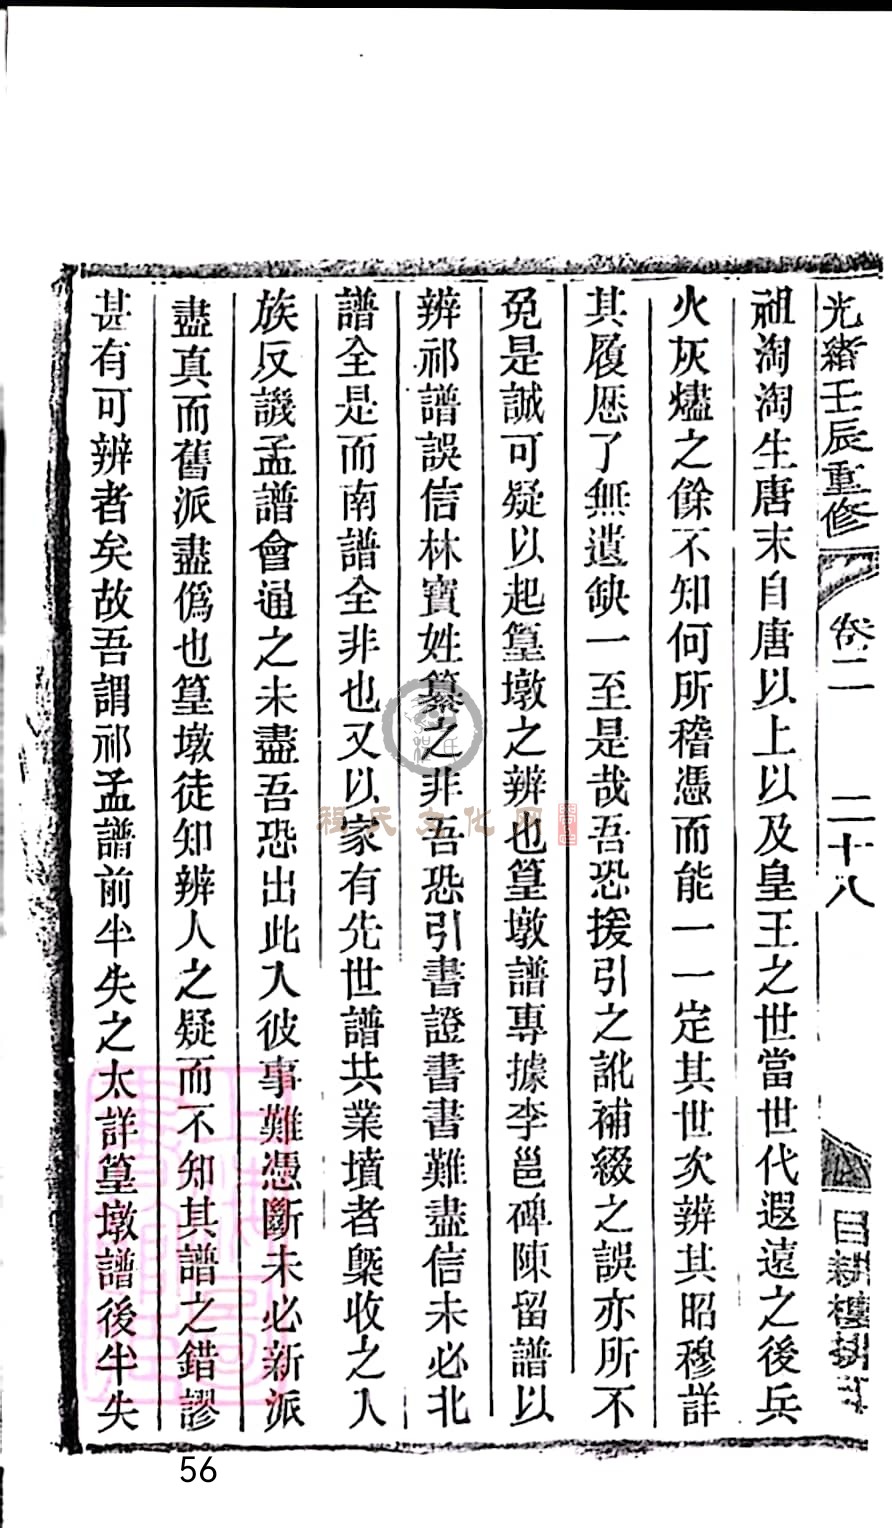 光緒壬辰重修
卷二
二十八
目耕樓
祖淘淘生唐末自唐以上以及皇王之世當世代遐遠之後兵
火灰燼之餘不知何所稽憑而能一一定其世次辨其昭穆詳
其履厯了無遺缺一至是哉吾恐援引之訛補綴之誤亦所不
免是誠可疑以起篁墩之辨也篁墩譜專據李邕碑陳留譜以
辨祁譜誤信林寶姓纂之非吾恐引書證書書難盡信未必北
譜全是而南譜全非也又以家有先世譜共業墳者槩收之入
族反譏孟譜會通之未盡吾恐出此入彼事難憑斷未必新派
盡真而舊派盡僞也篁墩徒知辨人之疑而不知其譜之錯謬
甚有可辨者矣故吾謂祁孟譜前半失之太詳篁墩譜後半失
程氏文化网
56